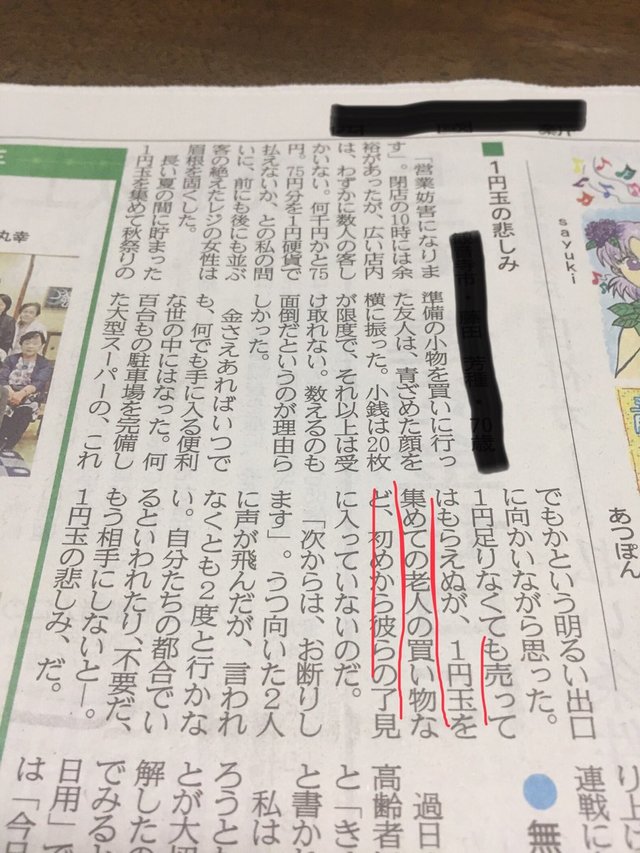 1円玉の悲しみ
70歳
「営業妨害になりま
す」。閉店の10時には余
裕があったが、広い店内
は、わずかに数人の客し
かいない。何千円かと75
円。75円分を1円硬貨で
払えないか、との私の問
いに、前にも後にも並ぶ
客の絶えたレジの女性は
眉根を固くした。
長い夏の間に貯まった
1円玉を集めて秋祭りの
準備の小物を買いに行っ
た友人は、青ざめた顔を
横に振った。小銭は20枚
が限度で、それ以上は受
け取れない。数えるのも
面倒だというのが理由ら
しかった。
金さえあればいつで
も、何でも手に入る便利
な世の中にはなった。何
百台もの駐車場を完備し
た大型スーパーの、これ
でもかという明るい出口
に向かいながら思った。
1円足りなくても売って
はもらえぬが、1円玉を
集めての老人の買い物な
ど、初めから彼らの了見
に入っていないのだ。
「次からは、お断りし
ます」。うつ向いた2人
に声が飛んだが、言われ
なくとも2度と行かな
い。自分たちの都合でい
るといわれたり、不要だ、
もう相手にしないと―。
1円玉の悲しみ、だ。
sayuki
あつぽん
丸幸
り上
連戦に
無
過日
高齢者
と「き
と書か
私は
ろうと
とが大
解した
でみると
日用」で
は「今